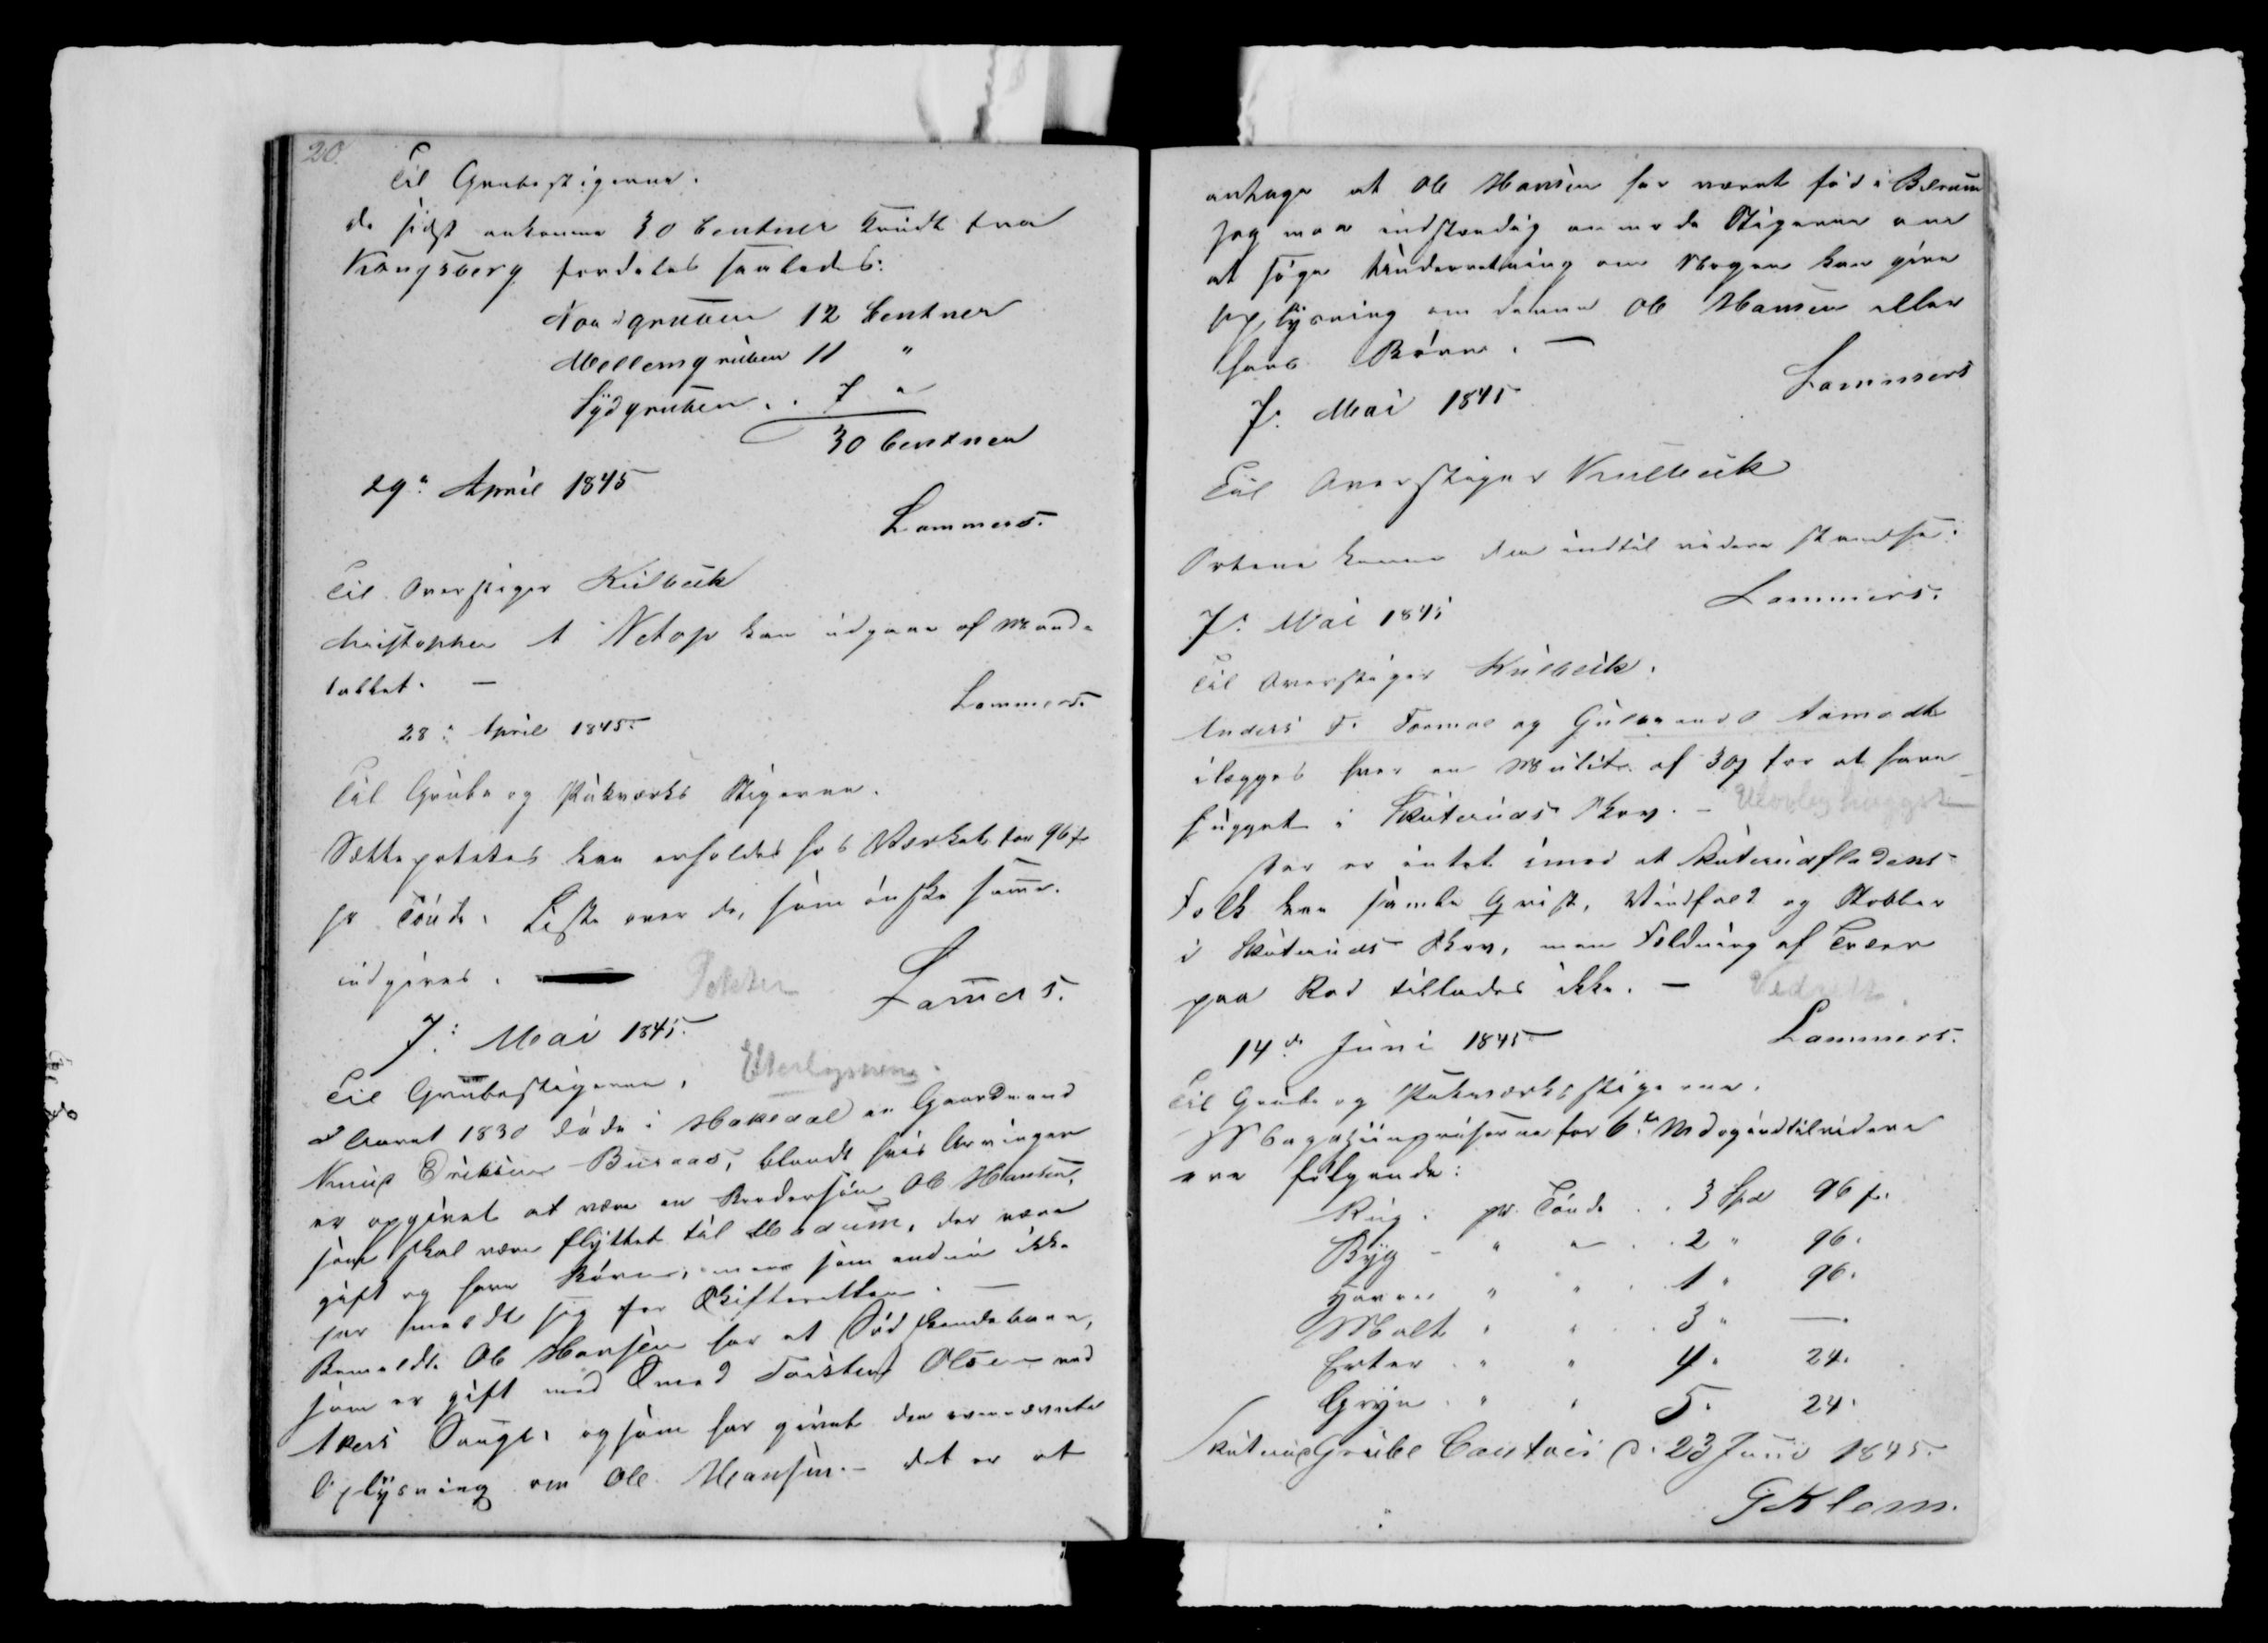 20.
Til Grubestigerne.
de sidst ankomne 30 Centner Krudt fra
Kongsberg fordeles saaledes:
Nordgruben 12 Centner
Mellemgruben 11 "
Sydgruben . . 7 "
30 Centner
29de April 1845
Lammers.
Til Overstiger Kulbeck
Christopher A Netop kan udgaae af Mand-
tallet. —
Lammers.
28: April 1845.
Til Grube og Pukværks Stigerne.
Sættepoteter kan erholdes hos Værket for 96 s
pr Tönde. Liste over de, som önske samme.
indgives.
Poteter
Lamers.
7: Mai 1845.
Til Grubestigerne.
Efterlysning.
Aaret 1830 döde i Hakedal en Gaardmand
Knud Eriksen Buraas, blandt hvis Arvinger
er opgivet at være en Brodersön Ole Hansen,
som skal være flyttet til Modum, der være
gift og have Börn, men som endnu ikke
har meldt sig for Skifteretten. —
Bemeldte Ole Hansen har et Södskendebarn,
som er gift med Smed Torsten Olsen ved
Akers Sogn, og som har givet den ovennævnte
Oplysning om Ole Hansen. - det er at
antage at Ole Hansen har været föd i Bærum
Jeg maa indstændig anmode Stigerne om
at söge Underretning om Nogen kan give
Oplysning om denne Ole Hansen eller
hans Börn. —
Lammers
7. Mai 1845
Til Overstiger Kulbeck
Ortene kunne den indtil videre standse.
Lammers.
7: Mai 1845
Til Overstiger Kulbeck.
Anders F. Foemoe og Gulbrand Aamodt
ilægges hver en Mulkt af 30 s for at have
hugget i Skuteruds Skov. - Ulovlig huggst
Der er intet imod at Skuterudfladens
Folk kan samle Qvist, Vindfald og Stobber
i Skuteruds Skov, men Fældning af Træer
paa Rod tillades ikke. — Vedhugst
14de Juni 1845
Lammers.
Til Grube og Pukværksstigerne.
Magaziinpriserne for 6te Md og indtil videre
ere fölgende:
Rug . pr. Tönde . . 3 Spd 96 s.
Byg - " " . . 2 " 96.
Havre " " . 1 " 96.
Malt " " . . 3 " —.
Erter . " " 4. 24.
Gryn . " " 5. 24.
Skuterud Grube Contoir d. 23 Juni 1845.
G Klem.